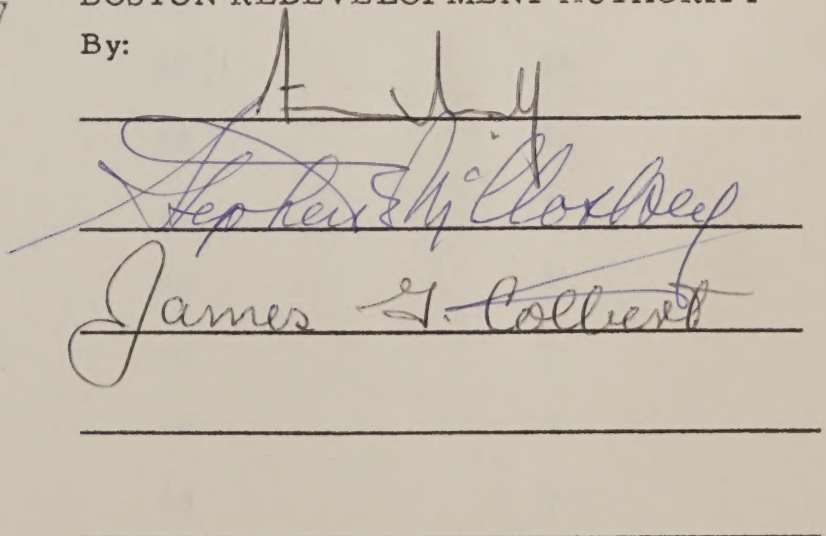 BOSTON REDEVELOPMENT AUTHORITY
By:
Stephen E. McCloskey
James G. Colbert